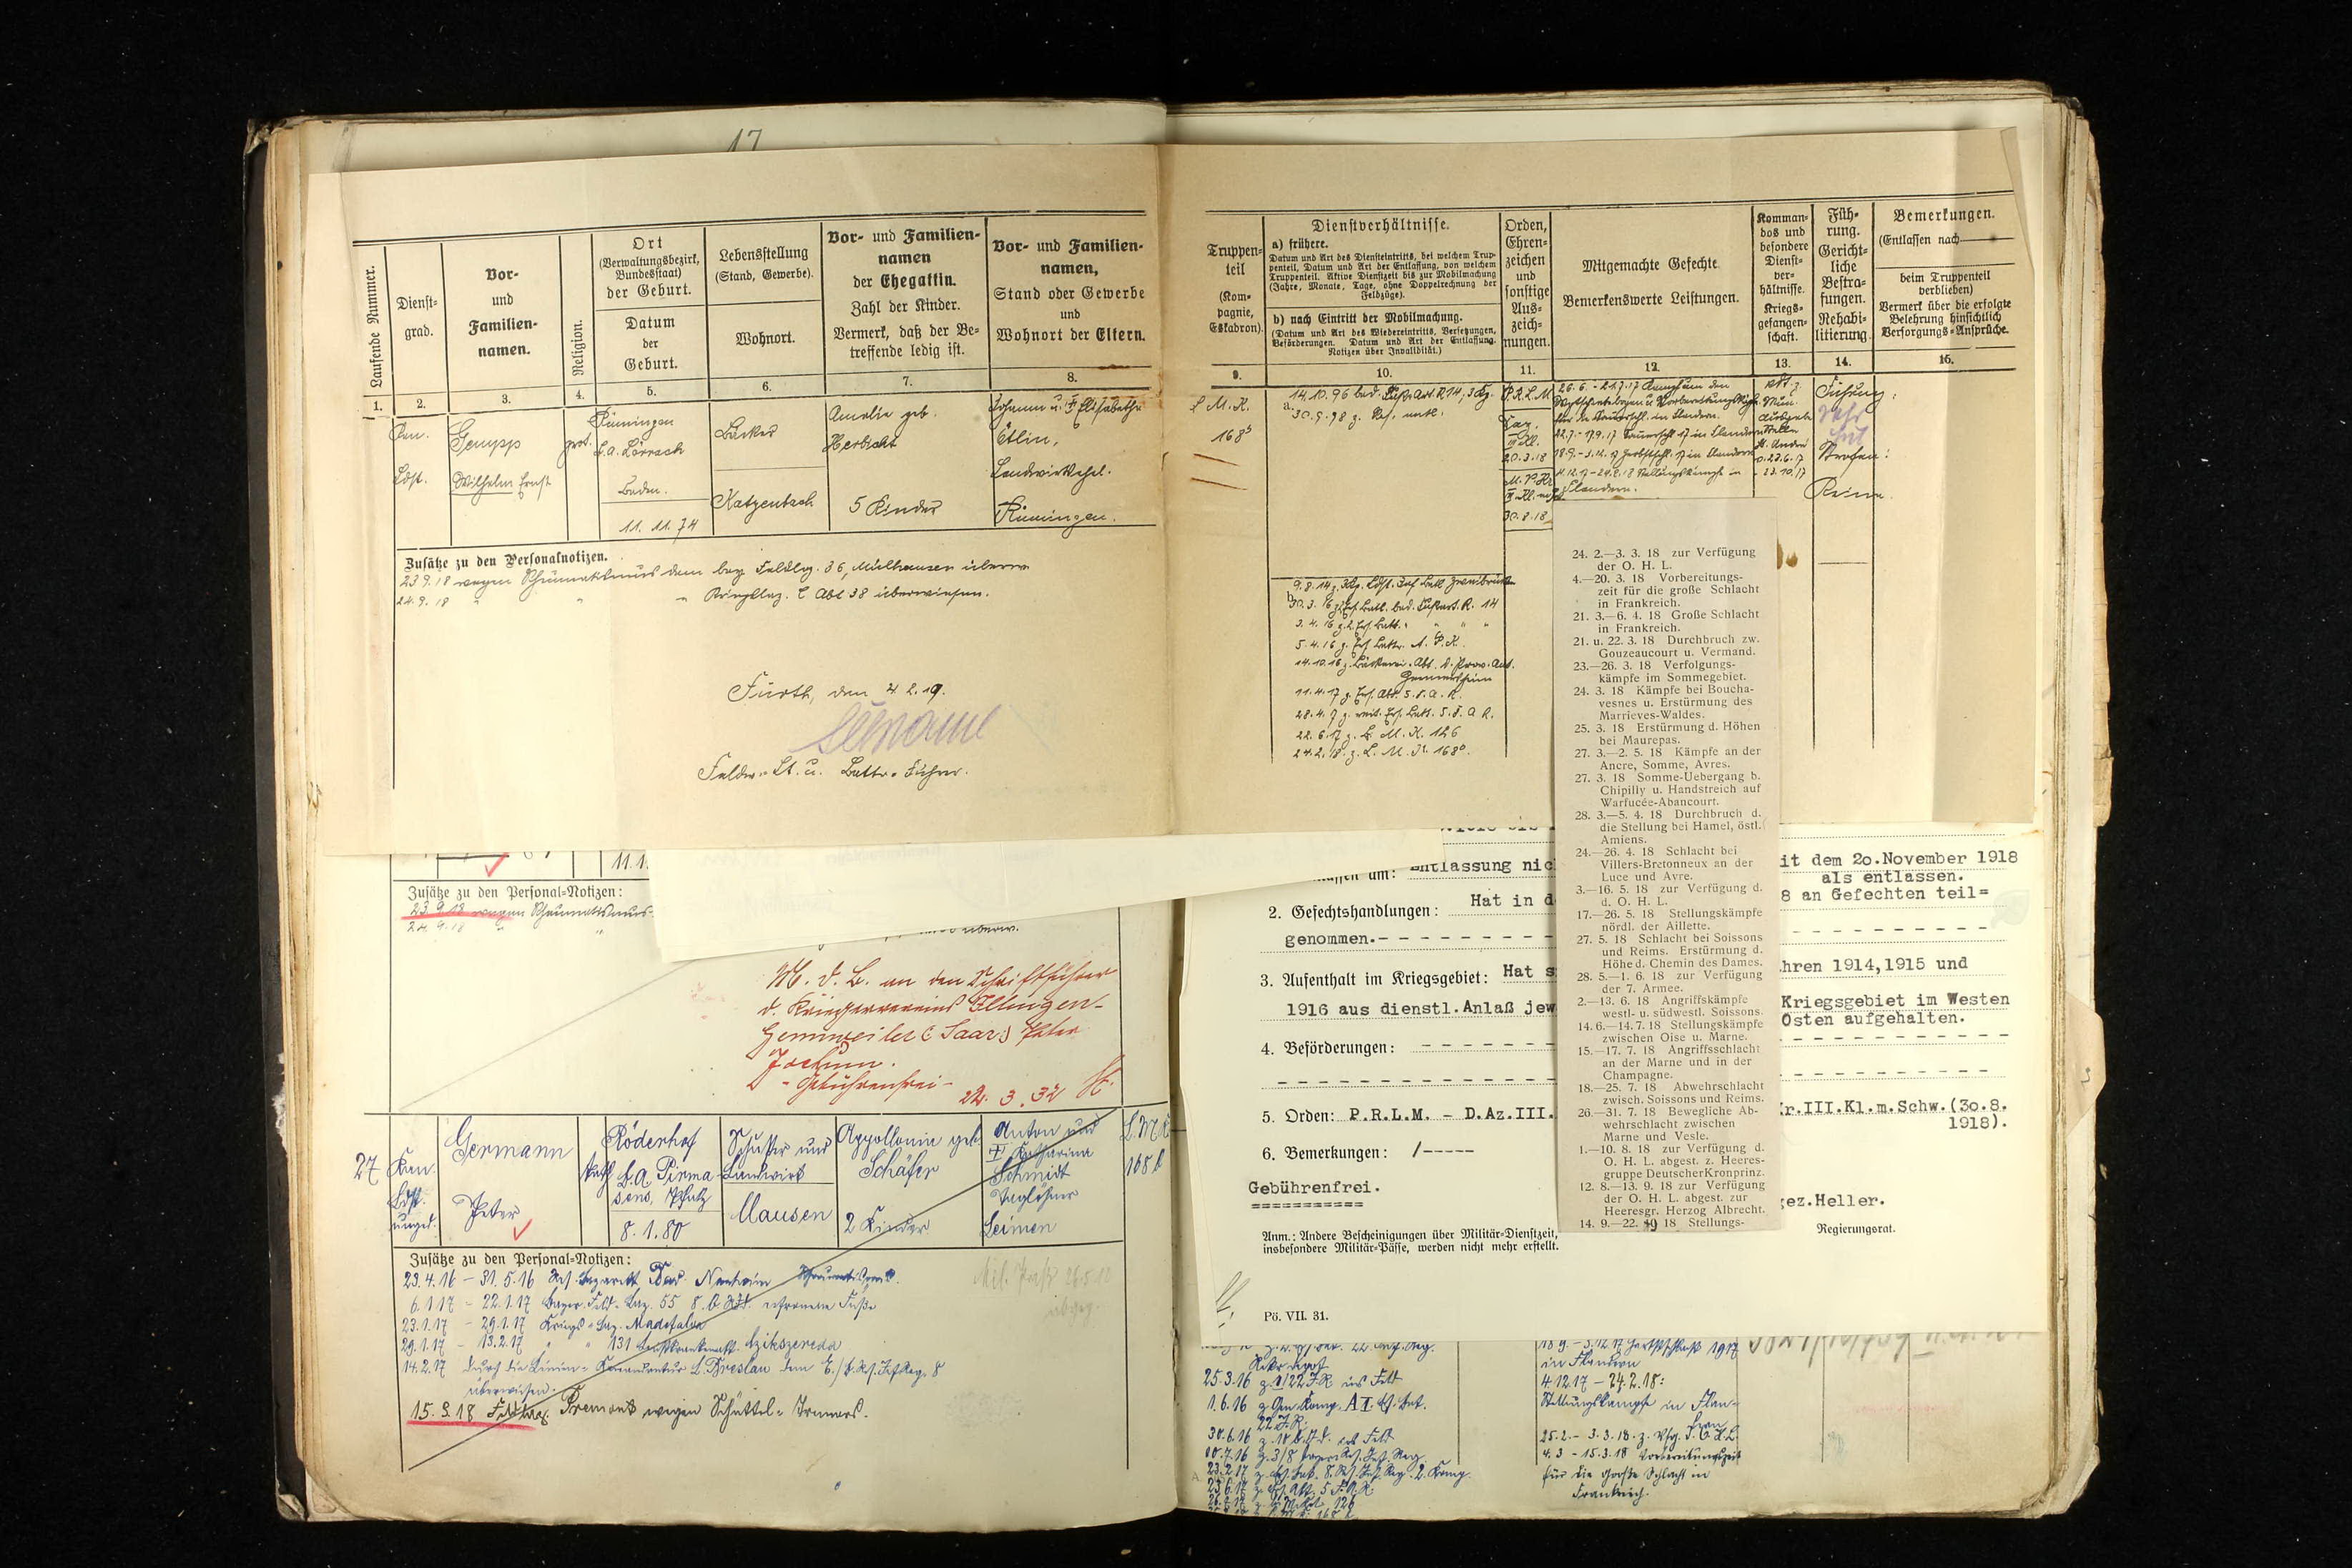 17
Laufende Nummer.
Dienst-
grad.
Vor-
und
Familien-
namen.
Religion.
Ort
(Verwaltungsbezirk,
Bundesstaat)
der Geburt.
Datum
der
Geburt.
Lebensstellung
(Stand, Gewerbe).
Wohnort.
Vor- und Familien-
namen
der Ehegattin.
Zahl der Kinder.
Vermerk, daß der Be-
treffende ledig ist.
Vor- und Familien-
namen,
Stand oder Gewerbe
und
Wohnort der Eltern.
1. 2. 3. 4. 5. 6. 7. 8.
Kan.
Ldst.
Gempp
Wilhelm Ernst
prot.
Rümingen
b.a. Lörrach
Baden.
11. 11. 74
Bäcker
Katzenbach
Amalie geb.
Herbicht
5 Kinder
Johann u. Elisabetha
Ötlin,
Landwirtsehel.
Rümingen.
Zusätze zu den Personalnotizen.
23.9.18 wegen Rheumatismus dem bay. Feldlaz. 36, Mülhausen überw.
24.9.18 " " " Kriegslaz. Abt 38 überwiesen.
Fürth, den 4.2.19.
Feldw. Lt. u. Battr. Führer.
Truppen-
teil
(Kom-
pagnie,
Eskadron).
Dienstverhältnisse.
a) frühere.
Datum und Art des Diensteintritts, bei welchem Trup-
penteil, Datum und Art der Entlassung, von welchem
Truppenteil. Aktive Dienstzeit bis zur Mobilmachung
(Jahre, Monate, Tage, ohne Doppelrechnung der
Feldzüge).
b) nach Eintritt der Mobilmachung.
(Datum und Art des Wiedereintritts, Versetzungen,
Beförderungen. Datum und Art der Entlassung.
Notizen über Invalidität.)
Orden,
Ehren-
zeichen
und
sonstige
Aus-
zeich-
nungen.
Mitgemachte Gefechte.
Bemerkenswerte Leistungen.
Komman-
dos und
besondere
Dienst-
ver-
hältnisse.
Kriegs-
gefangen-
schaft.
Füh-
rung.
Gericht-
liche
Bestra-
fungen.
Rehabi-
litierung.
Bemerkungen.
(Entlassen nach
beim Truppenteil
verblieben)
Vermerk über die erfolgte
Belehrung hinsichtlich
Versorgungs-Ansprüche.
9. 10. 11. 12. 13. 14. 15.
L.M.K.
168 b
a. 14.10.96 bad. Fußart.R.14, 3 Kg.
30.9.98 z. Res. entl.
P.R.L.M.
20.3.18
30.8.18
26.6. - 21.7.17
in Flandern.
Flandern.
Führung:
Sehr
gut
Strafen:
Keine.
b. 9.8.14 z. 3Kg. Ldst. Inf. Batl. Zweibrücken
30.3.16 z. Ers. Batl. bad. Fußart. R. 14
3.4.16 z. 2. Ers. Batt. " " "
14.10.16 z. Bäckerei-Abt. d. Prov. Amt.
Germersheim
11.4.17 z. Ers. Abt. 5. F.A.R.
22.6.17 z. L.M.K. 126
24.2.18 z. L.M.K. 168 b.
24. 2.—3. 3. 18 zur Verfügung
der O. H. L.
4.—20. 3. 18 Vorbereitungs-
zeit für die große Schlacht
in Frankreich.
21. 3.—6. 4. 18 Große Schlacht
in Frankreich.
21. u. 22. 3. 18 Durchbruch zw.
Gouzeaucourt u. Vermand.
23.—26. 3. 18 Verfolgungs-
kämpfe im Sommegebiet.
24. 3. 18 Kämpfe bei Boucha-
vesnes u. Erstürmung des
Marrieves-Waldes.
25. 3. 18 Erstürmung d. Höhen
bei Maurepas.
27. 3.—2. 5. 18 Kämpfe an der
Ancre, Somme, Avres.
27. 3. 18 Somme-Uebergang b.
Chipilly u. Handstreich auf
Warfucée-Abancourt.
28. 3.—5. 4. 18 Durchbruch d.
die Stellung bei Hamel, östl.
Amiens.
24.—26. 4. 18 Schlacht bei
Villers-Bretonneux an der
Luce und Avre.
3.—16. 5. 18 zur Verfügung d.
d. O. H. L.
17.—26. 5. 18 Stellungskämpfe
nördl. der Aillette.
27. 5. 18 Schlacht bei Soissons
und Reims. Erstürmung d.
Höhe d. Chemin des Dames.
28. 5.—1. 6. 18 zur Verfügung
der 7. Armee.
2.—13. 6. 18 Angriffskämpfe
westl- u. südwestl. Soissons.
14. 6.—14. 7. 18 Stellungskämpfe
zwischen Oise u. Marne.
15.—17. 7. 18 Angriffsschlacht
an der Marne und in der
Champagne.
18.—25. 7. 18 Abwehrschlacht
zwisch. Soissons und Reims.
26.—31. 7. 18 Bewegliche Ab-
wehrschlacht zwischen
Marne und Vesle.
1.—10. 8. 18 zur Verfügung d.
O. H. L. abgest. z. Heeres-
gruppe Deutscher Kronprinz.
12. 8.—13. 9. 18 zur Verfügung
der O. H. L. abgest. zur
Heeresgr. Herzog Albrecht.
14. 9.—22. 9 18 Stellungs-
11.1
Zusätze zu den Personal-Notizen:
23.9.18 wegen Rheumatismus-
24.9.18 " "
überw.
M. d. B. an den Schriftführer
d. Kriegervereins Illingen-
Gennweiler (Saar) Peter
Jochum.
- Gebührenfrei -
22. 3. 32
entlassung nic
it dem 20.November 1918
als entlassen.
2. Gefechtshandlungen: Hat in d
8 an Gefechten teil=
genommen.- - - - - - - - - -
3. Aufenthalt im Kriegsgebiet: Hat s
hren 1914,1915 und
1916 aus dienstl.Anlaß jew
Kriegsgebiet im Westen
Osten aufgehalten.
4. Beförderungen: - - - - - -
5. Orden: P.R.L.M. - D.Az.III.
Kr.III.Kl.m.Schw.(30.8.
1918).
6. Bemerkungen: /-----
Gebührenfrei.
===========
gez.Heller.
Regierungsrat.
Anm.: Andere Bescheinigungen über Militär-Dienstzeit,
insbesondere Militär-Pässe, werden nicht mehr erstellt.
Pö. VII. 31.
27
Kan.
Ldst.
unged.
Germann
Peter
kath
Röderhof
b.a. Pirma
sens, Pfalz
8. 1. 80
Schuster und
Landwirt
Clausen
Appollonia geb
Schäfer
2 Kinder
Anton und
Katharina
Schmidt
Taglöhner
Leimen
L.M.K
168 b
Zusätze zu den Personal-Notizen:
23.4.16 - 31.5.16 Res. Lazarett Bad Nauheim Rheumatismus.
6.1.17 - 22.1.17 Bayer. Feld-Laz. 55 erfrorene Füße
23.1.17 - 29.1.17 Kriegs-Laz. Madefalva
29.1.17 - 13.2.17 " " 131 Czikszereda
14.2.17 durch die Linien-Kommandantur L. Breslau dem E./b.Rs.Inf.Reg. 8
überwiesen.
15.3.18 Feldlaz. Premont wegen
25.3.16 z. I/22 J.R. ins Feld
22 J.R.
18.9 - 3.12.17 Herbstschlacht 1917
in Flandern
4.12.17 - 24.2.18:
Stellungskämpfe in Flan-
dern
25.2. - 3.3.18. z. Vfg. d. O.H.L.
4.3 - 15.3.18 Vorbereitungszeit
für die große Schlacht in
Frankreich.